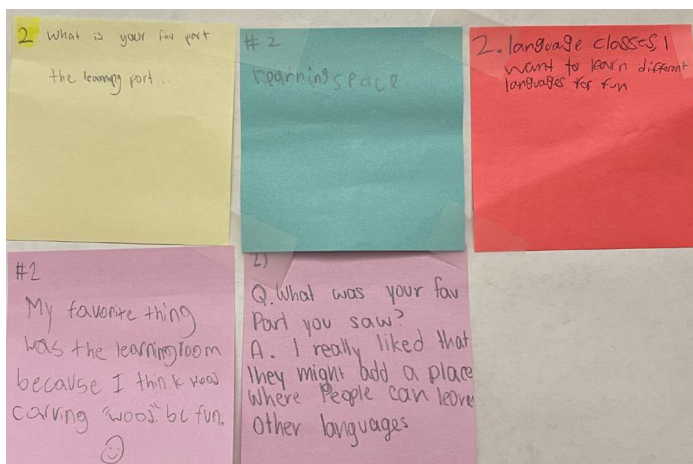 2 What is your fav part
the learning part..
#2
learning space
2. language classes, I
want to learn different
languages for fun
#2
My favorite thing
was the learning room
because I think wood
carving "wood" be fun.
2)
Q. What was your fav
Part you saw?
A. I really liked that
they might add a place
where People can learn
other languages